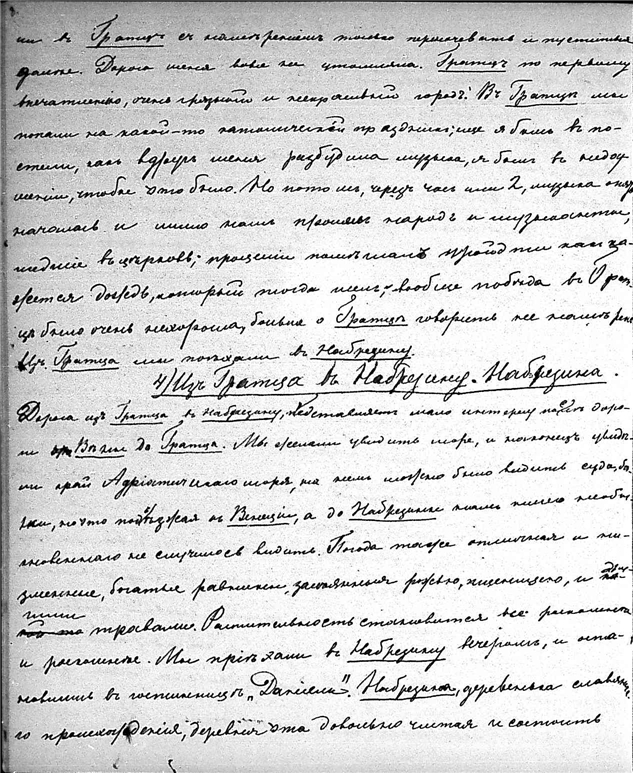 ли въ Гратцѣ съ намѣреніемъ только переночевать и пуститься
дальше. Дорога меня вовсе не утомила. Гратцъ по первому
впечатлѣнію, очень грязный и некрасивый городъ. Въ Гратцѣ мы
попали на какой-то католическій праздникъ; еще я былъ въ по-
стели, какъ вдругъ меня разбудила музыка, я былъ въ недоу
меніи, чтобы это было. Но потомъ, черезъ часъ или 2, музыка опять
началась и мимо насъ прошелъ народъ и музыканты,
шедшіе въ церковь; процессіи помѣшалъ пройдти ка-
жется дождь, который тогда шелъ; вообще погода въ Грат-
цѣ была очень нехороша, больше о Гратцѣ говорить не намѣренъ
Изъ Гратца мы поѣхали въ Набрезину.
4) Изъ Гратца въ Набрезину. Набрезина.
Дорога изъ Гратца въ Набрезину, представляетъ мало интересу послѣ доро-
ги Вѣны до Гратца. Мы желали увидѣть море, и наконецъ увидѣ-
ли край Адріатическаго моря, на немъ можно было видѣть суда,
но что подъѣзжая къ Венеціи, а до Набрезины намъ ничего необы-
кновеннаго не случилось видѣть. Погода тоже отличная и
богатые равнины, засѣянныя рожью, пшеницею, и дру-
гими травами. Растительность становится все роскошнѣе
и роскошнѣе. Мы пріѣхали въ Набрезину вечеромъ, и оста-
новились въ гостинницѣ „Даніели“. Набрезина, деревенька славянска
го происхожденія, деревня эта довольно чистая и состоитъ